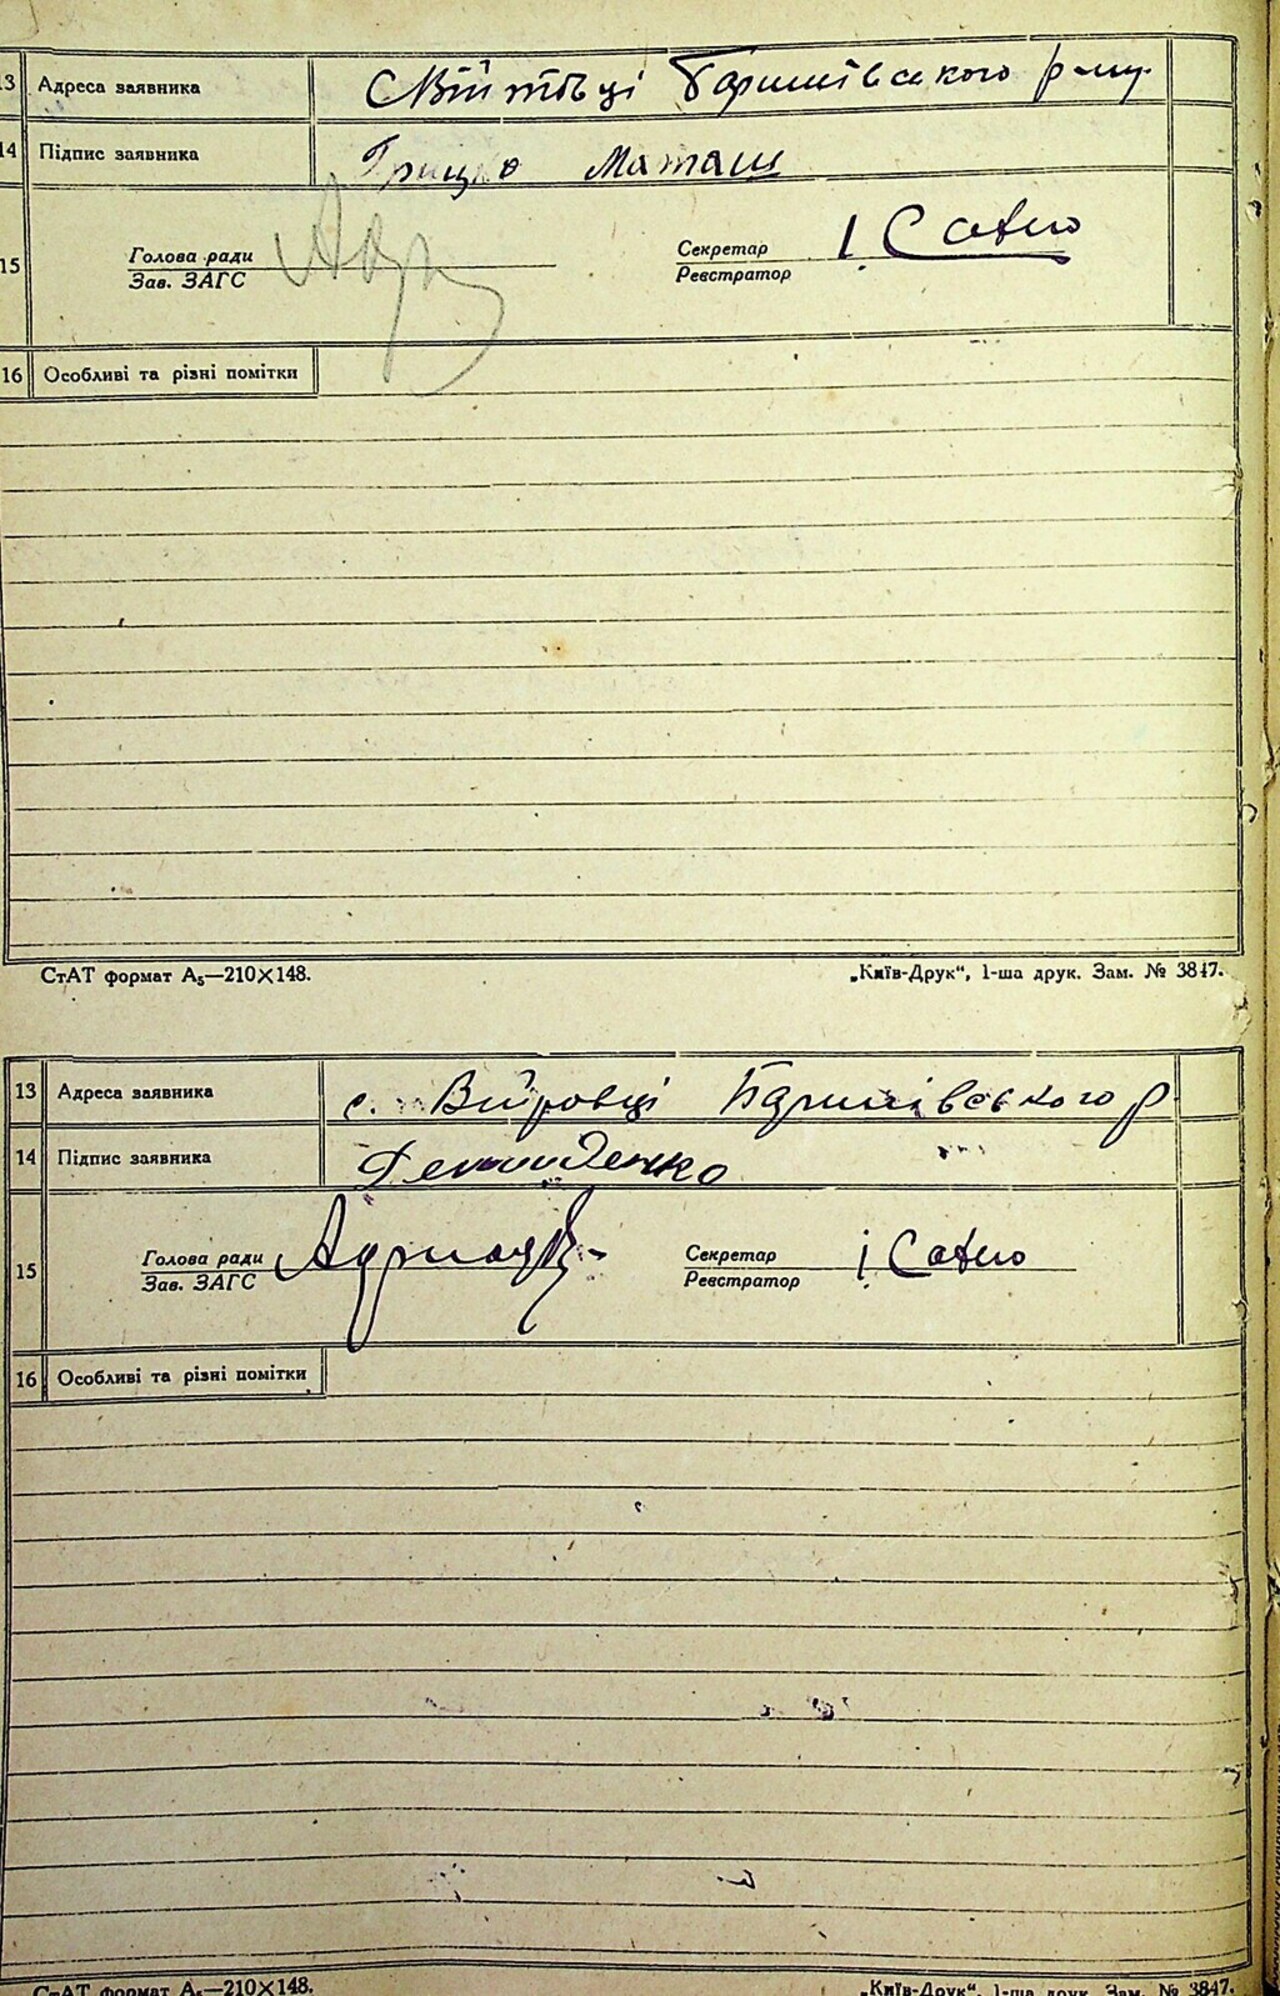 13 Адреса заявника с. Війтівці Баришівського р-ну
14 Підпис заявника Грицко Маташ
15 Голова ради Секретар І Сатю
Зав. ЗАГС Реєстратор
16 Особливі та різні помітки
СтАТ формат А₅—210×148. „Київ-Друк“, 1-ша друк. Зам. № 3847.
13 Адреса заявника с. Баришівського р
14 Підпис заявника Демиденко
15 Голова ради Секретар І
Зав. ЗАГС Реєстратор
16 Особливі та різні помітки
СтАТ формат А₅—210×148. „Київ-Друк“, 1-ша друк. Зам. № 3847.